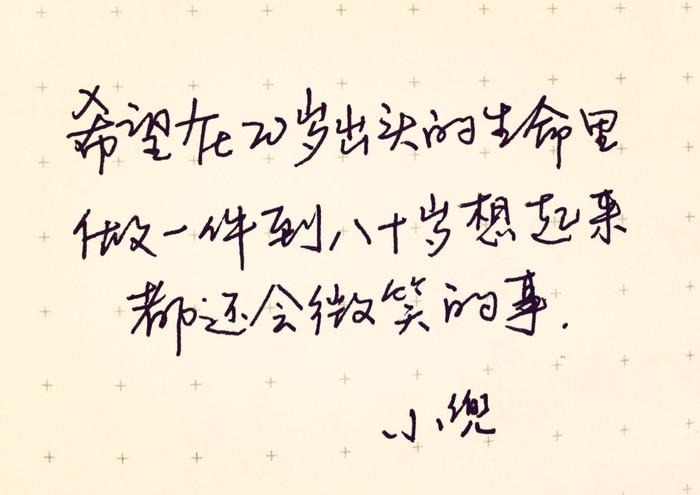 希望在20岁出头的生命里
做一件到八十岁想起来
都还会微笑的事.
小兜